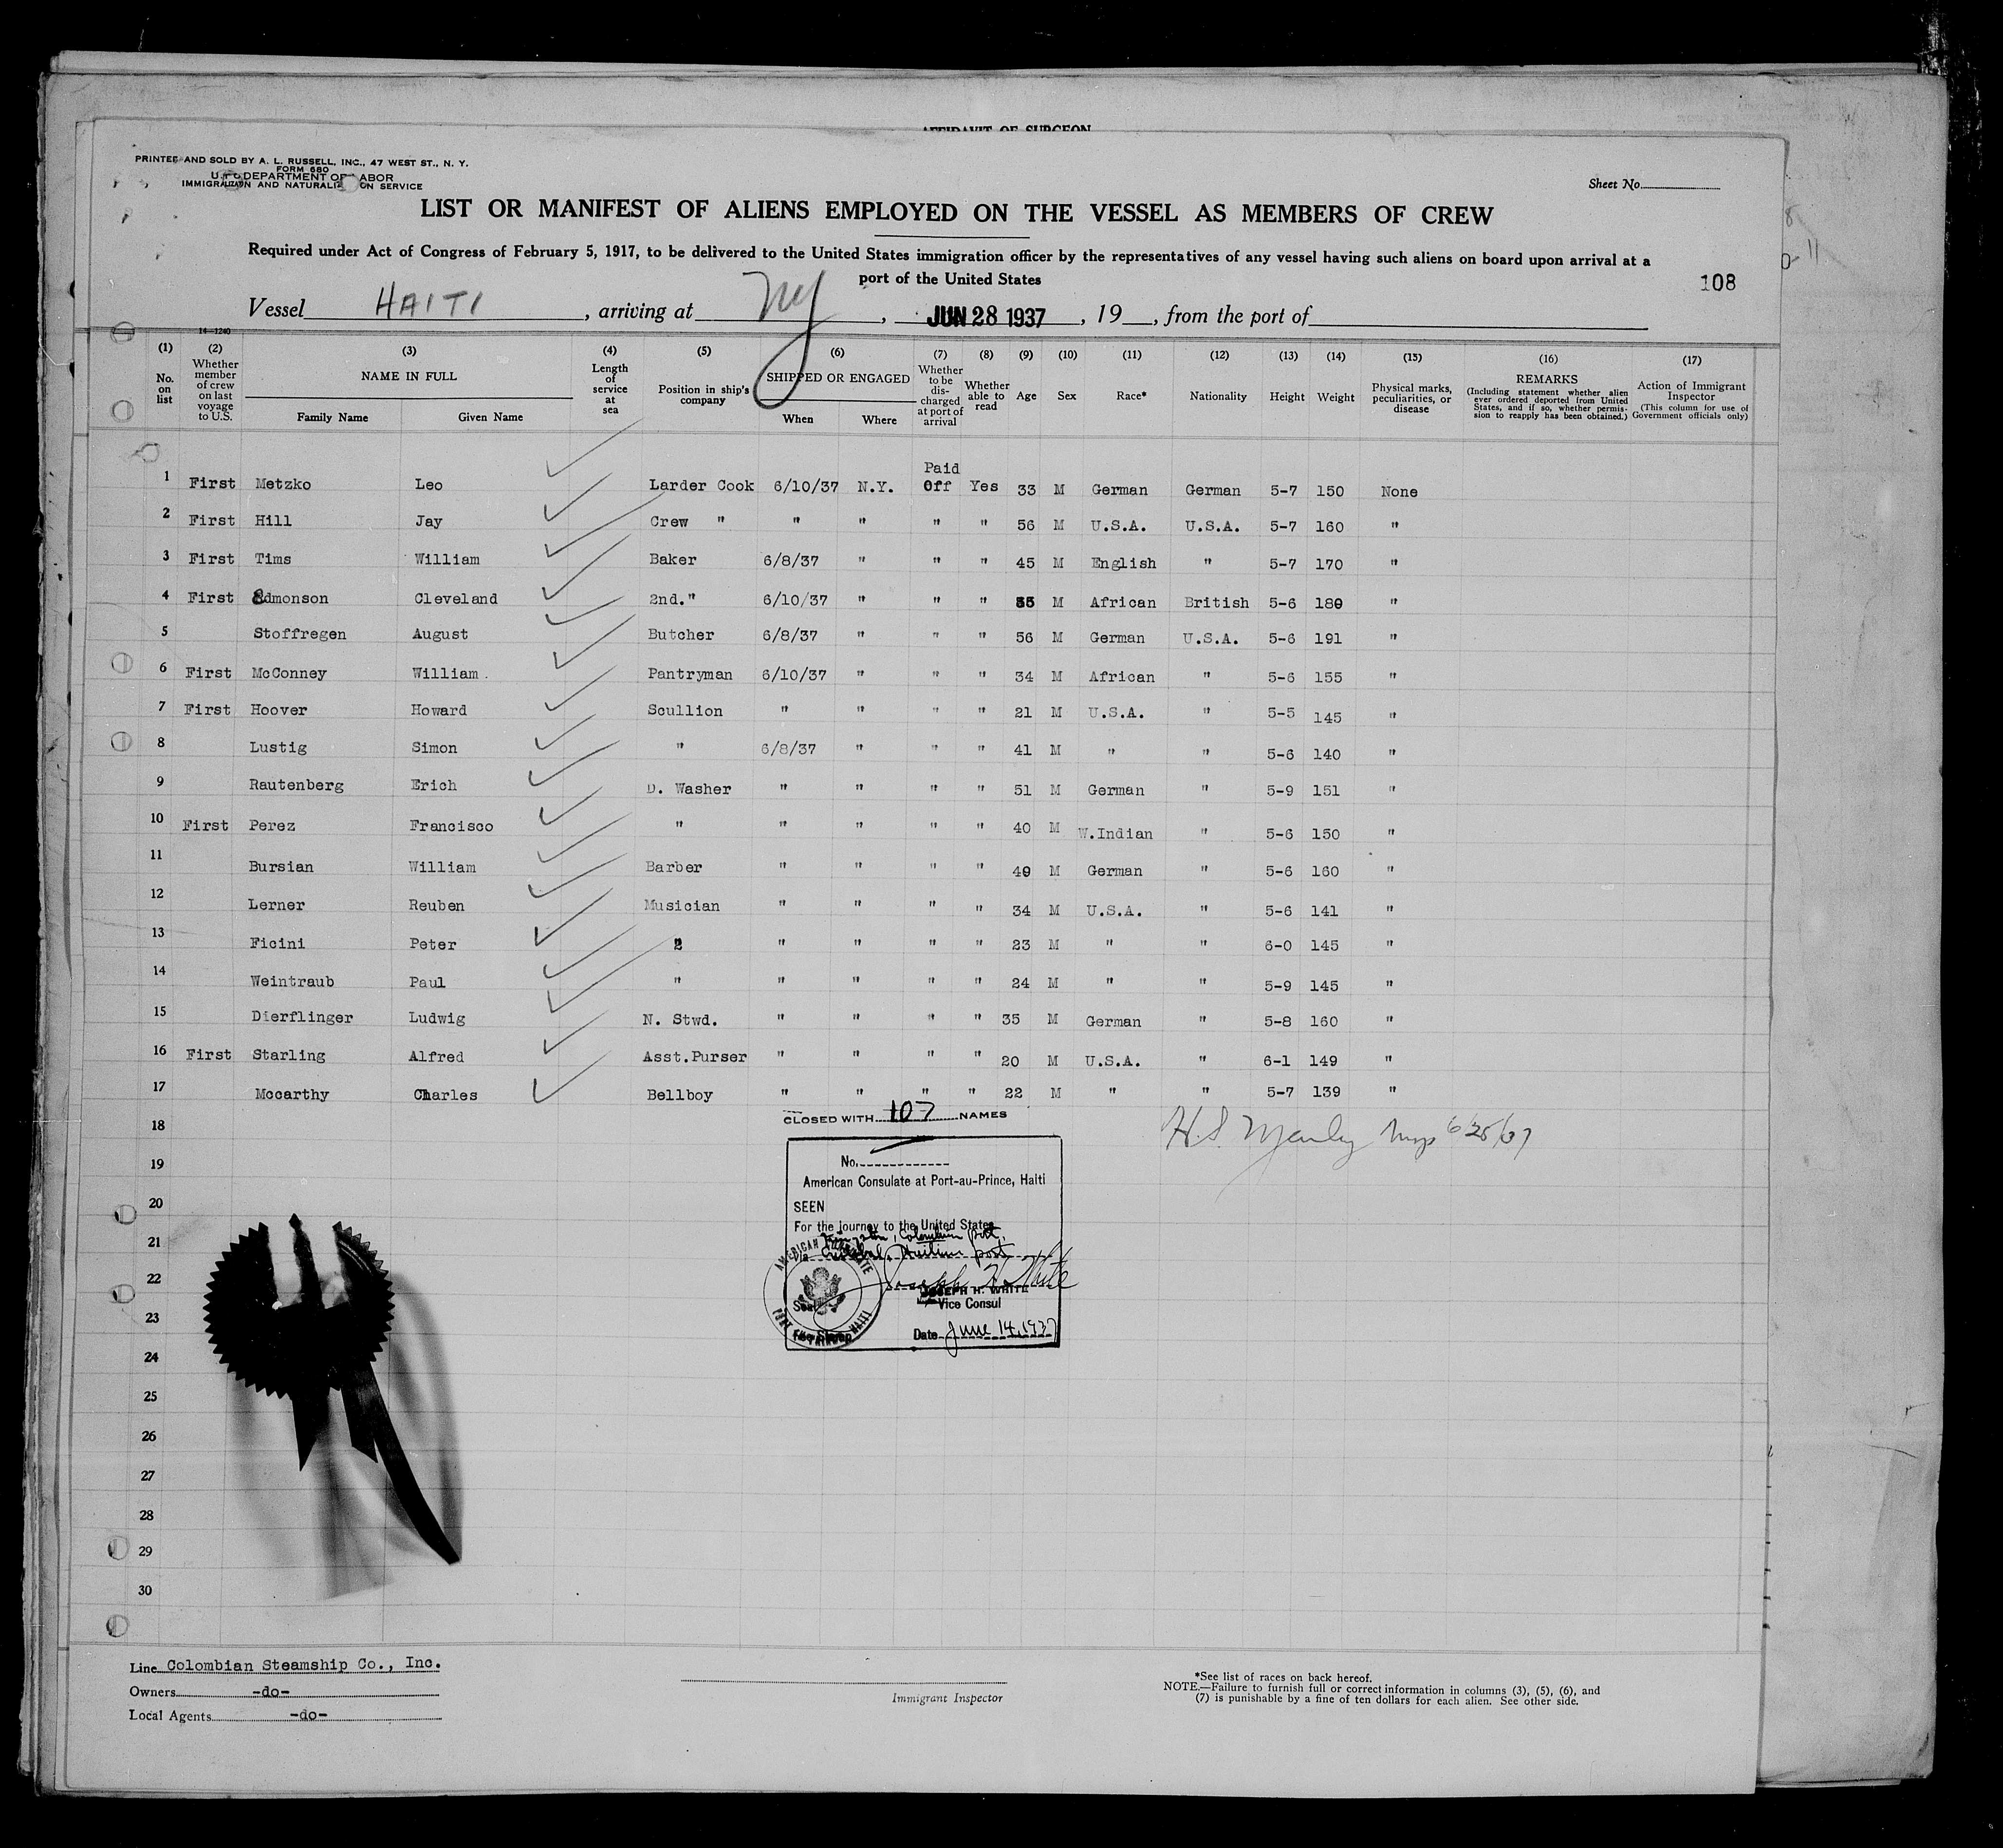 AFFIDAVIT OF SURGEON
PRINTED AND SOLD BY A. L. RUSSELL, INC., 47 WEST ST., N. Y.
FORM 680
U. S. DEPARTMENT OF LABOR
IMMIGRATION AND NATURALIZATION SERVICE
Sheet No.
LIST OR MANIFEST OF ALIENS EMPLOYED ON THE VESSEL AS MEMBERS OF CREW
Required under Act of Congress of February 5, 1917, to be delivered to the United States immigration officer by the representatives of any vessel having such aliens on board upon arrival at a
port of the United States
108
Vessel HAITI, arriving at NY, JUN 28 1937, 19__, from the port of
14—1240
(1) No. on list (2) Whether member of crew on last voyage to U.S. (3) NAME IN FULL Family Name Given Name (4) Length of service at sea (5) Position in ship's company (6) SHIPPED OR ENGAGED When Where (7) Whether to be discharged at port of arrival (8) Whether able to read (9) Age (10) Sex (11) Race* (12) Nationality (13) Height (14) Weight (15) Physical marks, peculiarities, or disease (16) REMARKS (Including statement whether alien ever ordered deported from United States, and if so, whether permission to reapply has been obtained.) (17) Action of Immigrant Inspector (This column for use of Government officials only)
1 First Metzko Leo Larder Cook 6/10/37 N.Y. Paid Off Yes 33 M German German 5-7 150 None
2 First Hill Jay Crew " " " " " 56 M U.S.A. U.S.A. 5-7 160 "
3 First Tims William Baker 6/8/37 " " " 45 M English " 5-7 170 "
4 First Edmonson Cleveland 2nd." 6/10/37 " " " M African British 5-6 180 "
5 Stoffregen August Butcher 6/8/37 " " " 56 M German U.S.A. 5-6 191 "
6 First McConney William. Pantryman 6/10/37 " " " 34 M African " 5-6 155 "
7 First Hoover Howard Scullion " " " " 21 M U.S.A. " 5-5 145 "
8 Lustig Simon " 6/8/37 " " " 41 M " " 5-6 140 "
9 Rautenberg Erich D. Washer " " " " 51 M German " 5-9 151 "
10 First Perez Francisco " " " " " 40 M W.Indian " 5-6 150 "
11 Bursian William Barber " " " " 49 M German " 5-6 160 "
12 Lerner Reuben Musician " " " " 34 M U.S.A. " 5-6 141 "
13 Ficini Peter " " " " 23 M " " 6-0 145 "
14 Weintraub Paul " " " " " 24 M " " 5-9 145 "
15 Dierflinger Ludwig N. Stwd. " " " " 35 M German " 5-8 160 "
16 First Starling Alfred Asst.Purser " " " " 20 M U.S.A. " 6-1 149 "
17 Mccarthy Charles Bellboy " " " " 22 M " " 5-7 139 "
CLOSED WITH 107 NAMES
18
19
20
21
22
23
24
25
26
27
28
29
30
No.
American Consulate at Port-au-Prince, Haiti
SEEN
For the journey to the United States
Colombian port,
Haitian port
Joseph H. White
JOSEPH H. WHITE
Vice Consul
Seal
Date June 14, 1937
Line Colombian Steamship Co., Inc.
Owners -do-
Local Agents -do-
Immigrant Inspector
*See list of races on back hereof.
NOTE.—Failure to furnish full or correct information in columns (3), (5), (6), and
(7) is punishable by a fine of ten dollars for each alien. See other side.